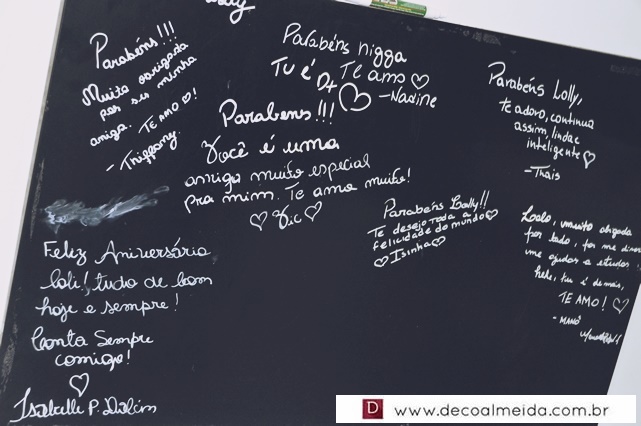 Parabéns!!!
Muito obrigada
por ser minha
amiga. TE AMO ♡!
- Thiffany.
Parabéns nigga
Tu é D+ Te amo ♡
- Nadine
Parabens!!!
Você é uma
amiga muito especial
pra mim. Te amo muito!
♡ Vic ♡
Parabéns Lolly,
te adoro, continua
assim, linda e
inteligente ♡
- Thais
Parabéns Loally!!
Te desejo toda a
felicidade do mundo ♡
♡ Isinha ♡
Feliz Aniversário
loli! tudo de bom
hoje e sempre!
Conta Sempre
comigo!
♡
Isabelle P.
por tudo, por me
me ajudar e
hehe, tu é demais,
TE AMO! ♡
- MANÔ
D www.decoalmeida.com.br